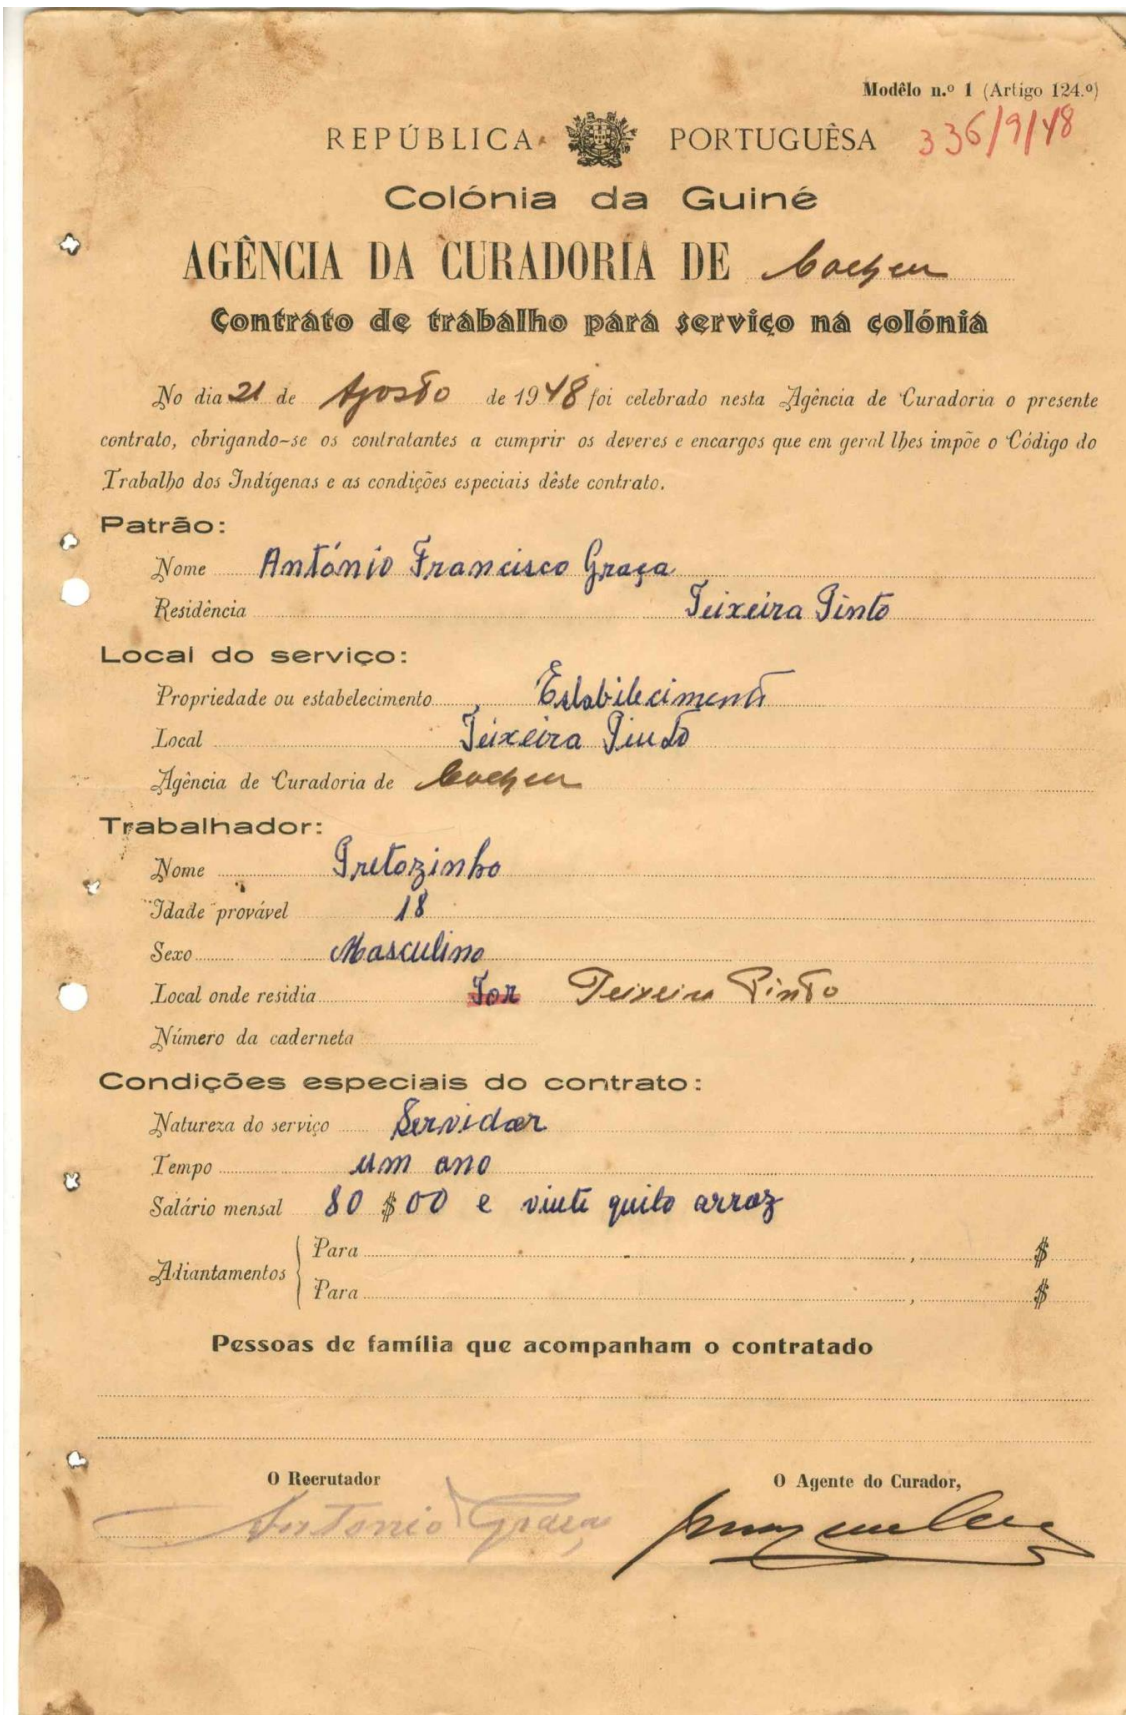 Modêlo n.º 1 (Artigo 124.º)
REPÚBLICA PORTUGUÊSA 336/9/48
Colónia da Guiné
AGÊNCIA DA CURADORIA DE Cacheu
Contrato de trabalho para serviço na colónia
No dia 21 de Agosto de 1948 foi celebrado nesta Agência de Curadoria o presente
contrato, obrigando-se os contratantes a cumprir os deveres e encargos que em geral lhes impõe o Código do
Trabalho dos Indígenas e as condições especiais dêste contrato.
Patrão:
Nome António Francisco Graça
Residência Teixeira Pinto
Local do serviço:
Propriedade ou estabelecimento Estabilecimento
Local Teixeira Pinto
Agência de Curadoria de Cacheu
Trabalhador:
Nome Pretozinho
Idade provável 18
Sexo Masculino
Local onde residia Tor Teixeira Pinto
Número da caderneta
Condições especiais do contrato:
Natureza do serviço Servidor
Tempo um ano
Salário mensal 80$00 e vinte quilo arroz
Adiantamentos
Para , $
Para , $
Pessoas de família que acompanham o contratado
O Recrutador O Agente do Curador,
Antonio Graça